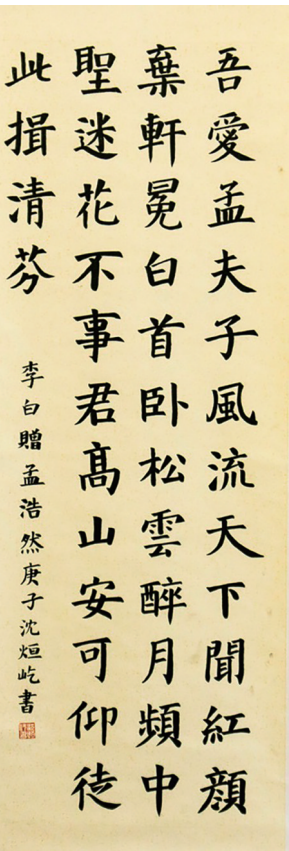 吾愛孟夫子風流天下聞紅顔
棄軒冕白首卧松雲醉月頻中
聖迷花不事君髙山安可仰徒
此揖清芬
李白贈孟浩然庚子沈烜屹書